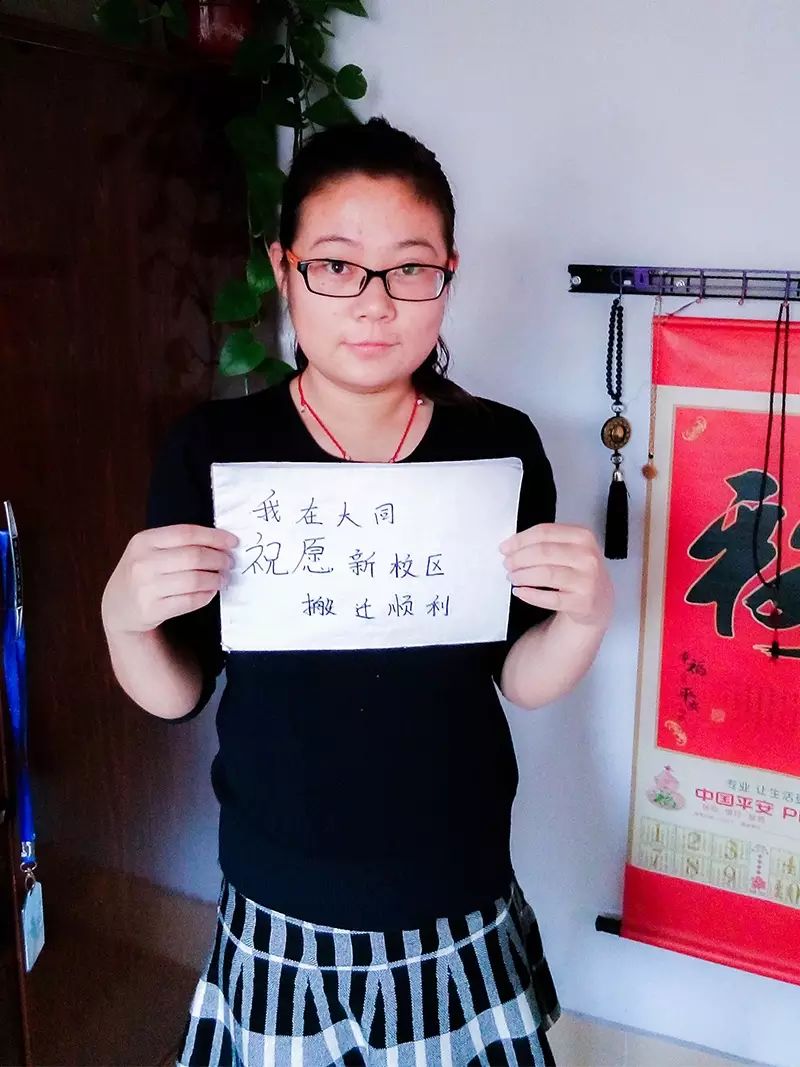 我在大同
祝愿新校区
搬迁顺利
专业 让生活
中国平安 P
1 2 3 4
7 8 9 10